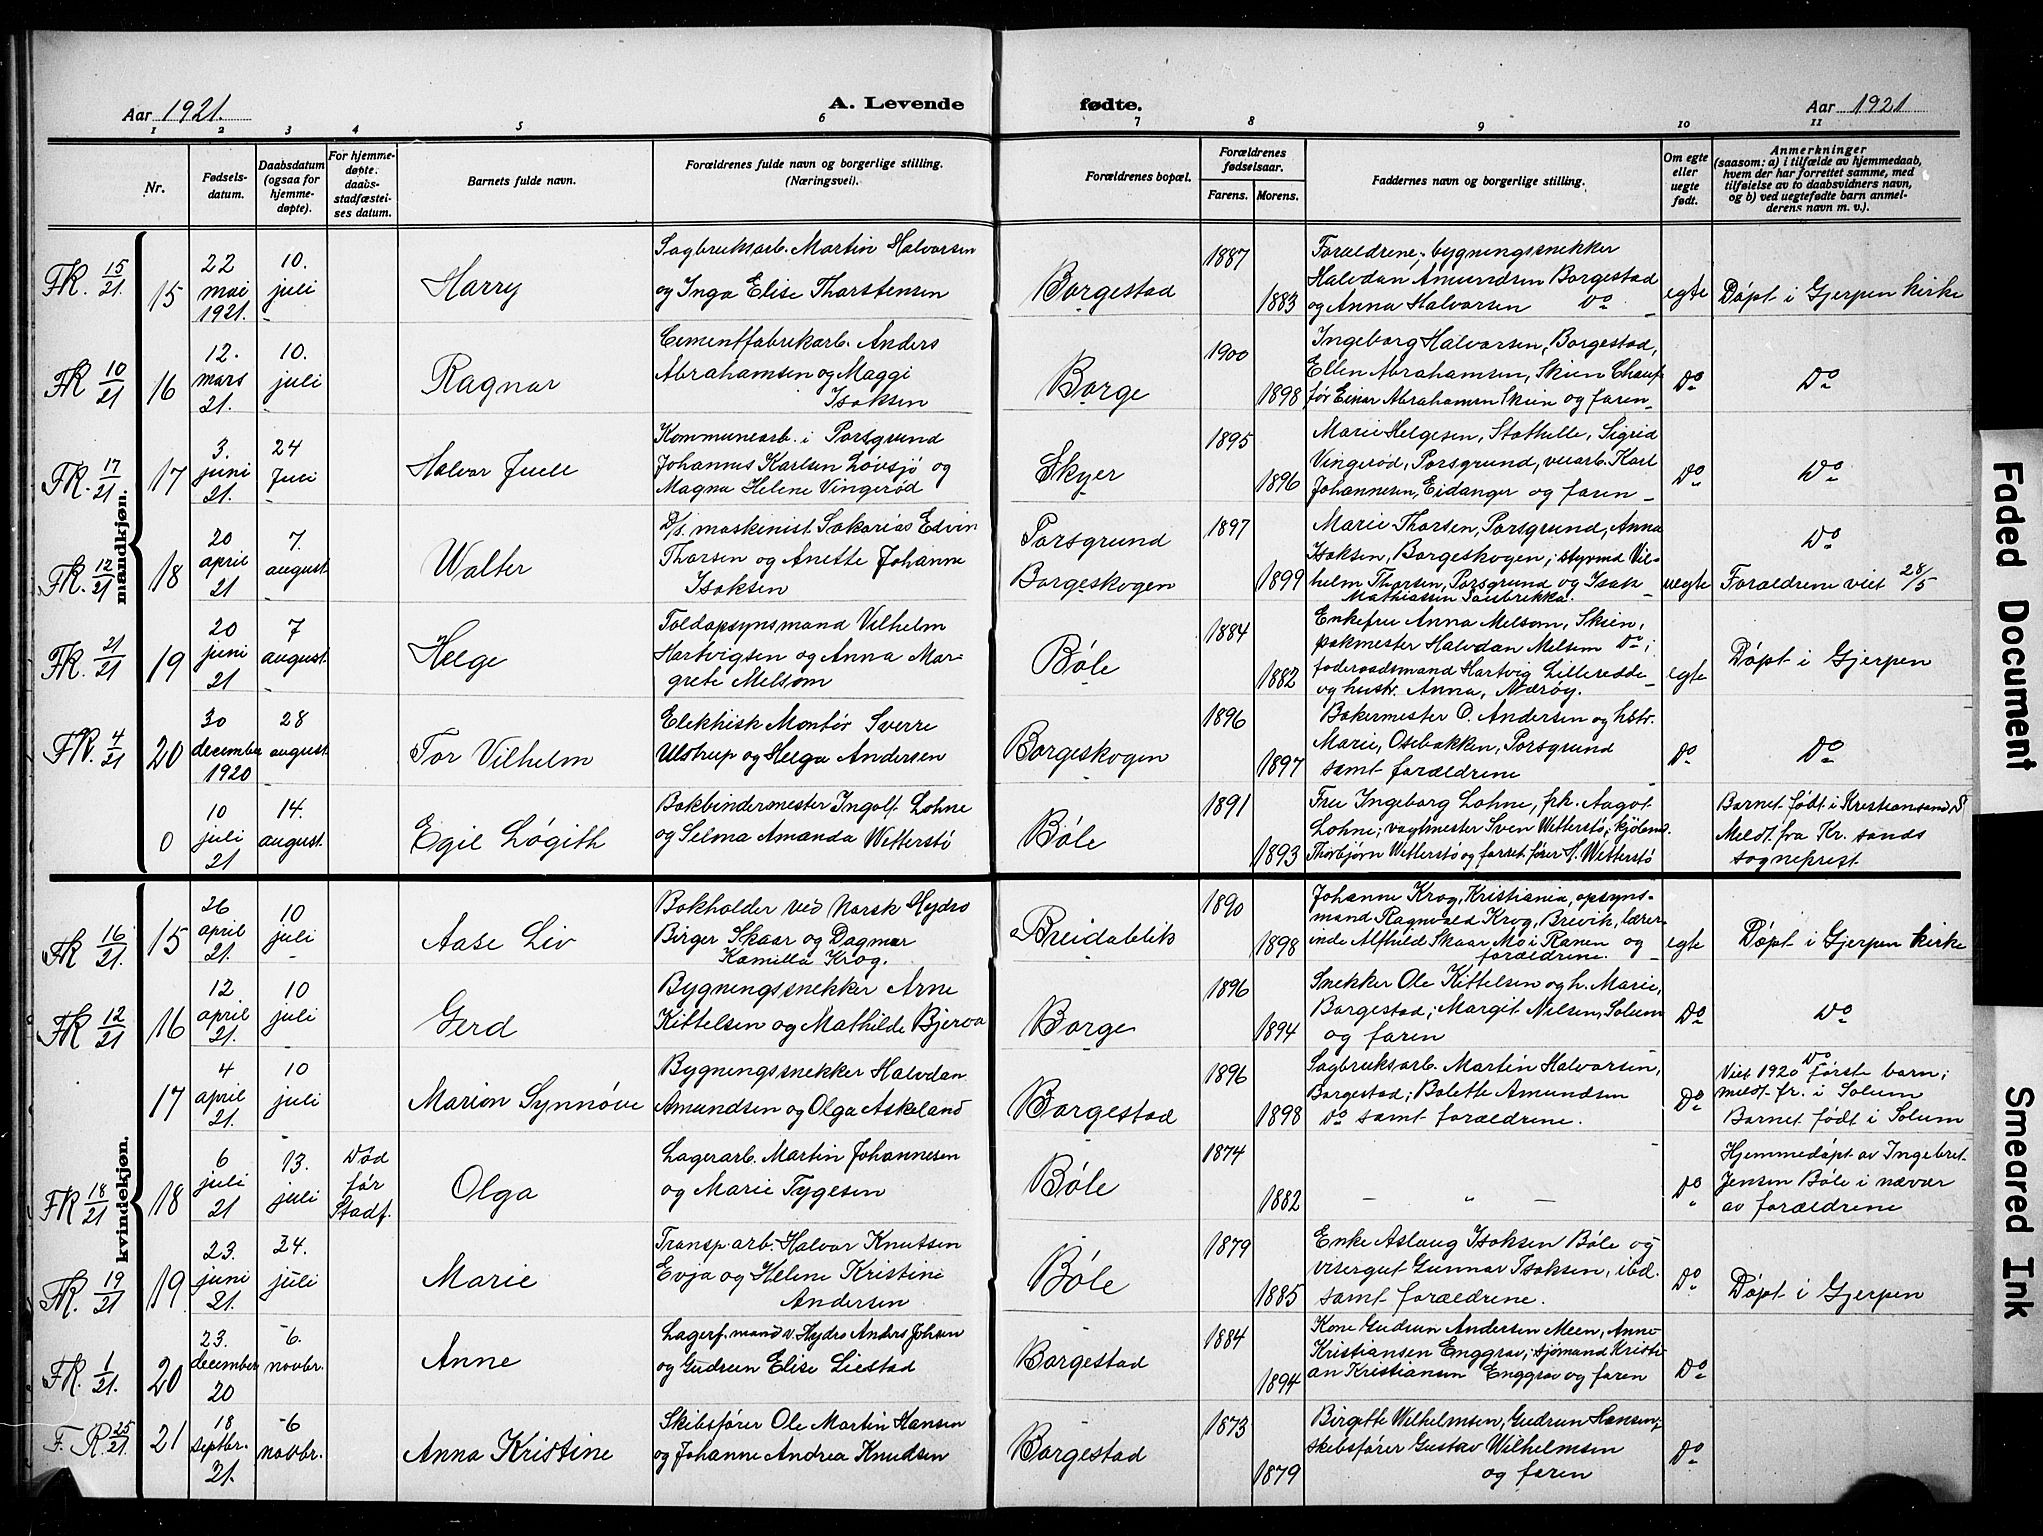 Aar 1921.
A. Levende
fødte.
Aar 1921
1 2 3 4 5 6 7 8 9 10 11
Nr.
Fødsels-
datum.
Daabsdatum
(ogsaa for
hjemme-
døpte).
For hjemme-
døpte.
daabs-
stadfæstel-
ses datum.
Barnets fulde navn.
Forældrenes fulde navn og borgerlige stilling.
(Næringsvei).
Forældrenes bopæl.
Forældrenes
fødselsaar.
Farens. Morens.
Faddernes navn og borgerlige stilling.
Om egte
eller
uegte
født.
Anmerkninger
(saasom: a) i tilfælde av hjemmedaab,
hvem der har forrettet samme, med
tilføielse av to daabsvidners navn,
og b) ved uegtefødte barn anmel-
derens navn m. v.).
mandkjøn.
FR. 15/21.
15
22
mai
1921.
10.
juli
Harry
Sagbruksarb. Martin Halvorsen
og Inga Elise Thorstensen
Borgestad
1887
1883
Forældrene; bygningssnekker
Halvdan Amundsen Borgestad
og Anna Halvorsen Do
egte
Døpt i Gjerpen kirke
FR 10/21
16
12.
mars
21.
10.
juli
Ragnar
Cementfabrikarb. Anders
Abrahamsen og Maggi
Isaksen
Borge
1900
1898
Ingeborg Halvorsen, Borgestad,
Ellen Abrahamsen, Skien Chauf-
før Einar Abrahamsen Skien og faren
Do
Do
FR. 17/21
17
3.
juni
21.
24
Juli
Halvor Juell
Kommunearb. i Porsgrund
Johannes Karlsen Løvsjø og
Magna Helene Vingerød
Skyer
1895
1896
Marie Helgesen, Stathelle, Sigrid
Vingerød, Porsgrund, veiarb. Karl
Johannesen, Eidanger og faren
Do
Do
FR. 12/21
18
20
april
21
7.
august
Walter
D/s. maskinist Sakarias Edvin
Thorsen og Anette Johanne
Isaksen
Porsgrund
Borgeskogen
1897
1899
Marie Thorsen, Porsgrund, Anna
Isaksen, Borgeskogen; styrmd Vil-
helm Thorsen, Porsgrund og Isak
Mathiassen
uegte
Do
Forældrene viet 28/5
FR. 21/21
19
20
juni
21
7
august
Helge
Toldopsynsmand Vilhelm
Hartvigsen og Anna Mar-
grete Melsom
Bøle
1884
1882
Enkefru Anna Melsom, Skien,
pakmester Halvdan Melsom Do;
foderaadsmand Hartvig Lilleredde
og hustr. Anna, Nærøy.
egte
Døpt i Gjerpen
FR. 4/21
20
30
december
1920
28
august
Tor Vilhelm
Elektrisk Montør Sverre
Ulstrup og Helga Andersen
Borgeskogen
1896
1897
Bakermester O. Andersen og hstr.
Marie, Osebakken, Porsgrund
samt forældrene
Do
Do
0
10
juli
21
14.
august
Egil Løgith
Bokbindermester Ingolf Lohne
og Selma Amanda Wetterstø
Bøle
1891
1893
Fru Ingeborg Lohne, frk. Aagot
Lohne; vagtmester Sven Wetterstø; kjøbmd.
Thorbjørn Wetterstø og forret.fører H. Wetterstø
Barnet født i Kristiansand S
Meldt fra Kr. sands
sogneprest
kvindekjøn.
FR 16/21.
15
26
april
21.
10
juli
Aase Liv
Bokholder ved Norsk Hydro
Birger Skaar og Dagmar
Kamilla Krog.
Breidablik
1890
1898
Johanne Krog, Kristiania, opsyns-
mand Ragnvald Krog, Brevik, lærer-
inde Alfhild Skaar, Mo i Ranen og
forældrene.
egte
Døpt i Gjerpen kirke
FR 12/21
16
12
april
21.
10
juli
Gerd
Bygningssnekker Arne
Kittelsen og Mathilde Bjerva
Borge
1896
1894
Snekker Ole Kittelsen og h. Marie,
Borgestad; Margit Nilsen, Solum
og faren
Do
Do
17
4
april
21.
10
juli
Marion Synnøve
Bygningssnekker Halvdan
Amundsen og Olga Askeland
Borgestad
1896
1898
Sagbruksarb. Martin Halvorsen,
Borgestad; Bolette Amundsen
Do samt forældrene.
Do
Do
Viet 1920 Første barn;
meldt fr. i Solum
Barnet født i Solum
FR 18/21
18
6
juli
21
13.
juli
Død
før
Stadf.
Olga
Lagerarb. Martin Johannesen
og Marie Tygesen
Bøle
1874
1882
— " —
Do
Hjemmedøpt av Ingebret
Jensen Bøle i nævær
av forældrene
FR. 19/21
19
23.
juni
21.
24.
juli
Marie
Transp.arb. Halvor Knutsen
Evja og Helene Kristine
Andersen
Bøle
1879
1885
Enke Aslaug Isaksen Bøle og
visergut Gunnar Isaksen, ibd.
samt forældrene.
Do
Døpt i Gjerpen
FR. 1/21.
20
23.
december
20
6.
novbr.
Anne
Lagerf.mand v. Hydro Anders Johsen
og Gudrun Elise Liestad
Borgestad
1884
1894
Kone Gudrun Andersen Meen, Anne
Kristiansen Enggrav; sjømand Kristi-
an Kristiansen Enggrav og faren
Do
F. R. 25/21.
21
18
septbr.
21.
6
novbr.
Anna Kristine
Skibsfører Ole Martin Hansen
og Johanne Andrea Knudsen
Borgestad
1873
1879
Birgitte Wilhelmsen, Gudrun Hansen,
skibsfører Gustav Wilhelmsen
og faren
Do
Faded Document
Smeared Ink